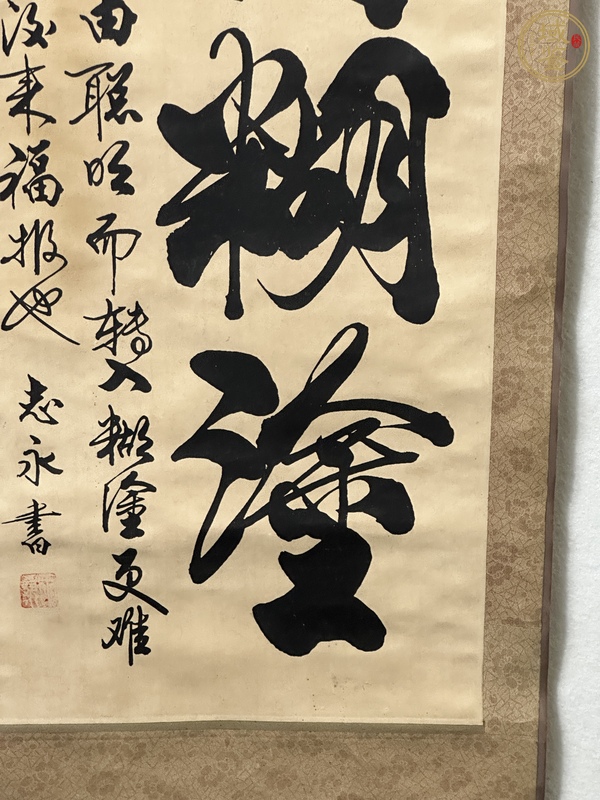 糊塗
由聪明而转入糊塗更难
后来福报也
志永書